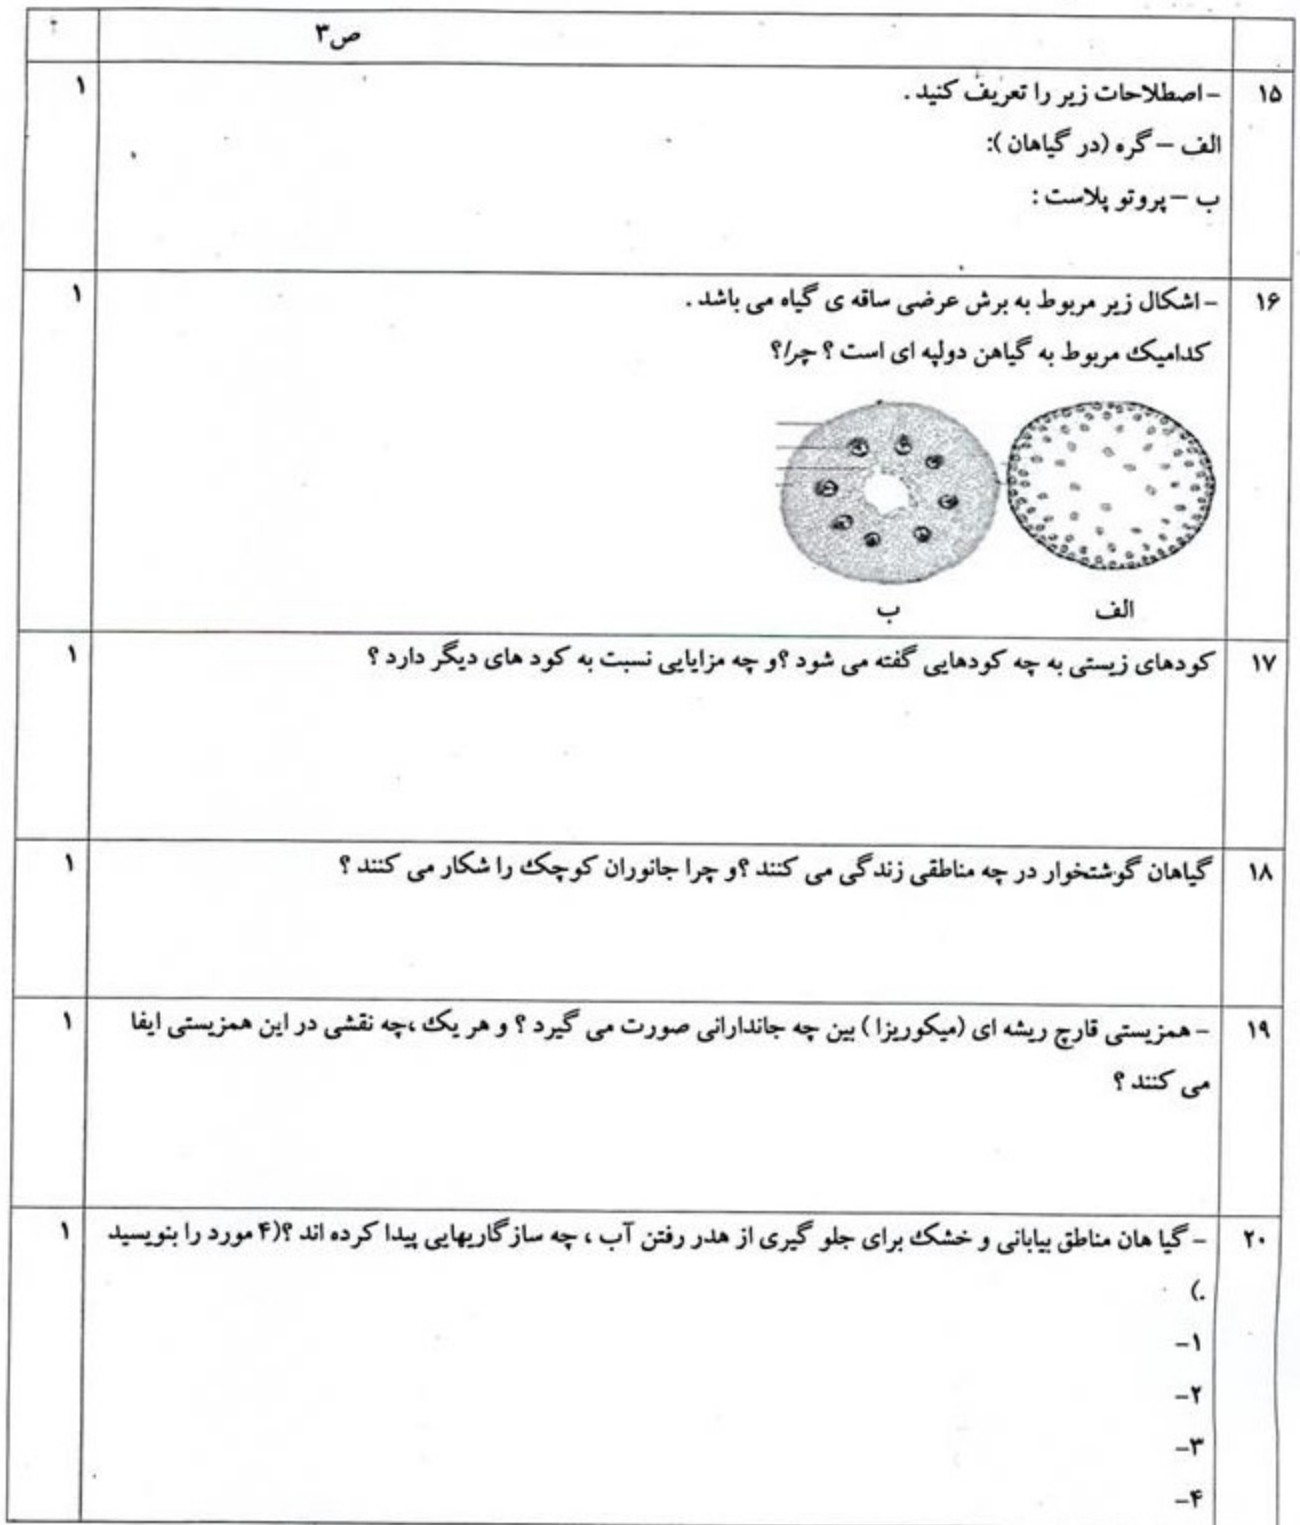 ص۳
۱۵ -اصطلاحات زیر را تعریف کنید. ۱
الف – گره (در گیاهان ):
ب – پروتو پلاست :
۱۶ -اشکال زیر مربوط به برش عرضی ساقه ی گیاه می باشد . ۱
کدامیک مربوط به گیاهن دولپه ای است ؟ چرا/؟
الف ب
۱۷ کودهای زیستی به چه کودهایی گفته می شود ؟و چه مزایایی نسبت به کود های دیگر دارد ؟ ۱
۱۸ گیاهان گوشتخوار در چه مناطقی زندگی می کنند ؟و چرا جانوران کوچک را شکار می کنند ؟ ۱
۱۹ - همزیستی قارچ ریشه ای (میکوریزا ) بین چه جاندارانی صورت می گیرد ؟ و هر یک ،چه نقشی در این همزیستی ایفا ۱
می کنند ؟
۲۰ - گیا هان مناطق بیابانی و خشک برای جلو گیری از هدر رفتن آب ، چه سازگاریهایی پیدا کرده اند ؟(۴ مورد را بنویسید ۱
.)
۱-
۲-
۳-
۴-